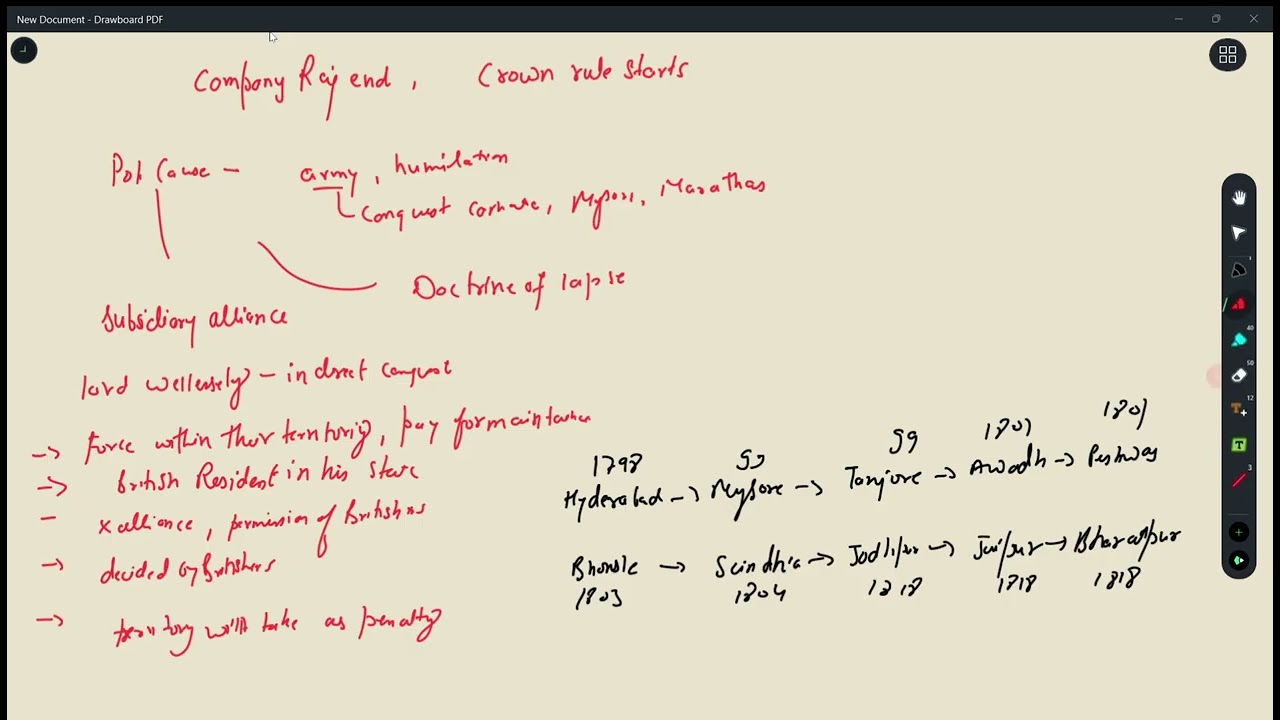 New Document - Drawboard PDF
Company Raj end, Crown rule starts
Pol Cause - army, humilation
Conquest carnatic, Mysore, Marathas
Doctrine of lapse
Subsidiary alliance
lord wellesely - indirect conquest
-> Force within their territory, pay for maintaince
-> British Resident in his state
- x alliance, permission of Britishers
-> decided by Britishers
-> territory will take as penalty
1798 99 1801
Hyderabad -> Mysore -> Tanjore -> Awadh -> Peshwas
Bhonsle -> Scindhia -> Jodhpur -> Jaipur -> Bharatpur
1803 1804 1818 1818 1818